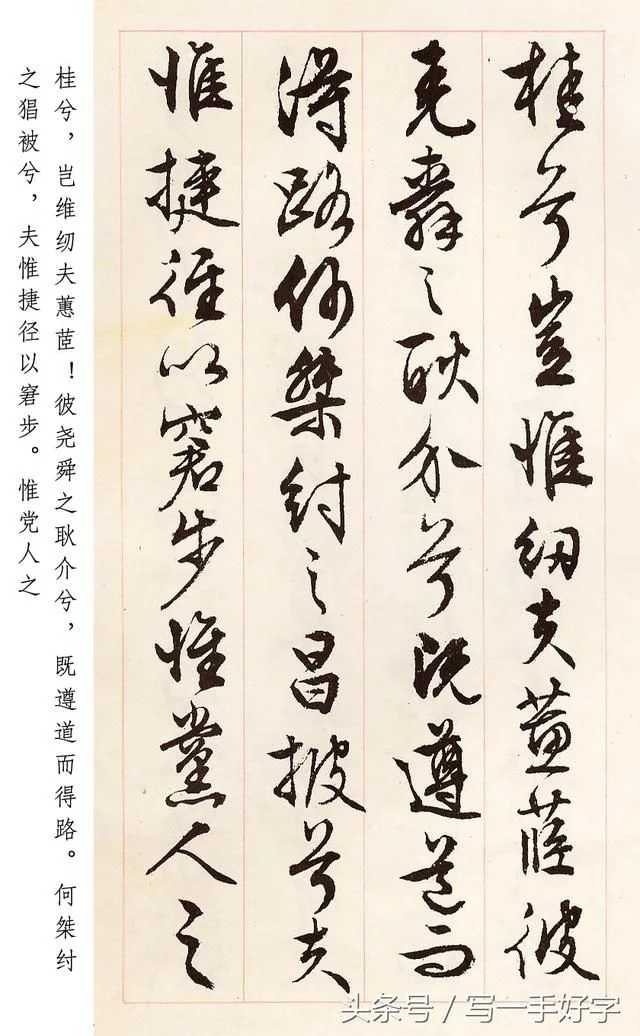 桂兮豈惟紉夫蕙茝彼
堯舜之耿介兮既遵道而
得路何桀紂之昌披兮夫
惟捷徑以窘步惟黨人之
桂兮，岂维纫夫蕙茝！彼尧舜之耿介兮，既遵道而得路。何桀纣
之猖被兮，夫惟捷径以窘步。惟党人之
头条号／写一手好字